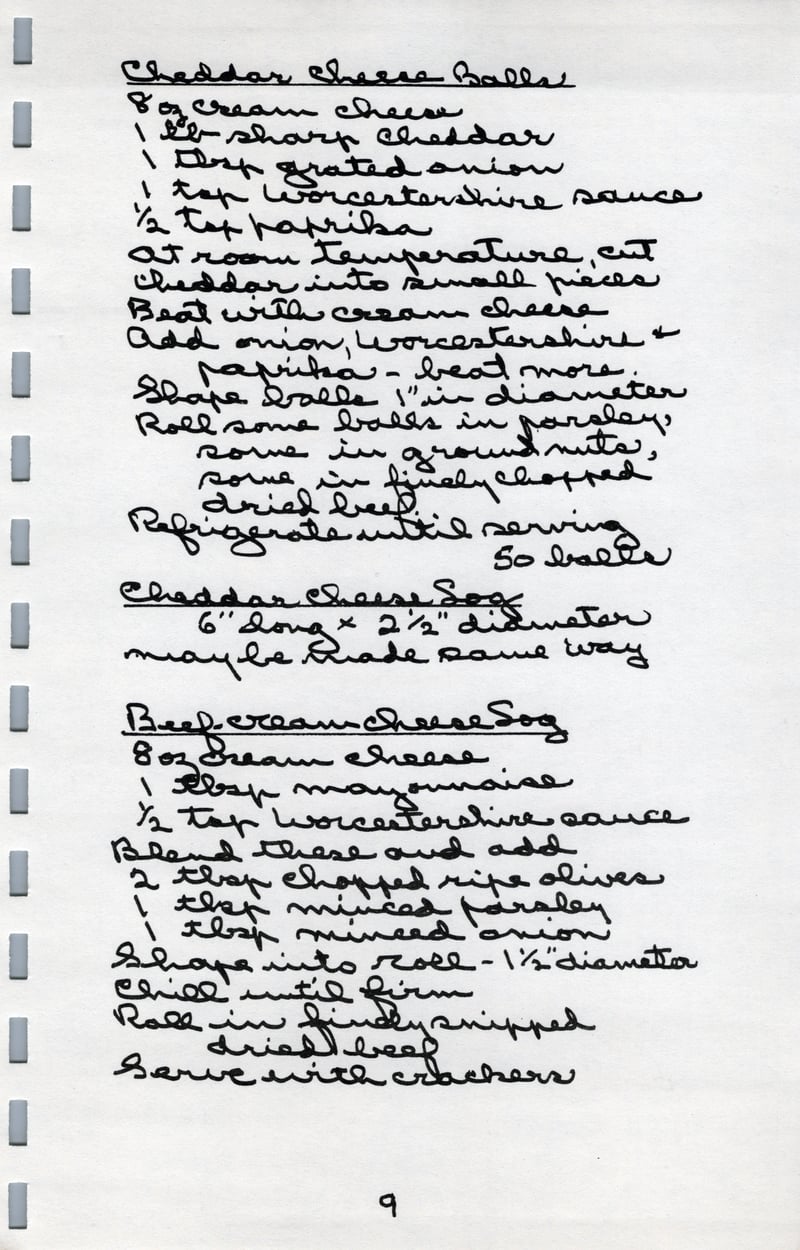 Cheddar Cheese Balls
8 oz cream cheese
1 lb sharp cheddar
1 tbsp grated onion
1 tsp Worcestershire sauce
1/2 tsp paprika
At room temperature, cut
cheddar into small pieces
Beat with cream cheese
Add onion, Worcestershire +
paprika - beat more.
Shape balls 1" in diameter
Roll some balls in parsley,
some in ground nuts,
some in finely chopped
dried beef.
Refrigerate until serving
50 balls
Cheddar Cheese Log
6" long x 2 1/2" diameter
may be made same way
Beef-cream cheese Log
8 oz cream cheese
1 tbsp mayonnaise
1/2 tsp Worcestershire sauce
Blend these and add
2 tbsp chopped ripe olives
1 tbsp minced parsley
1 tbsp minced onion
Shape into roll - 1 1/2" diameter
Chill until firm
Roll in finely snipped
dried beef
Serve with crackers
9